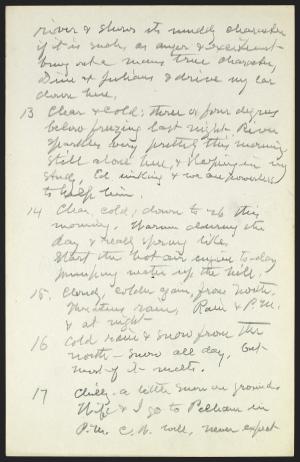 river & shows its muddy character
if it is such, as anger & excitement
bring out a mans true character,
Dine at Julians & drive my car
down here.
13 Clear & cold; three or four degrees
below freezing last night. River
sparkles very pretty this morning.
Still alone here, & sleeping in my
study, Ed sinking & we are powerless
to help him.
14 Clear, cold; down to 26 this
morning. Warm during the
day & really spring like.
Start the hot air engine to-day
pumping water up the hill.
15. Cloudy, colder again, from north.
Threatens rain, Rain in P.M.
& at night
16 Cold rain & snow from the
north - snow all day, but
most of it melts.
17 Chilly. a little snow on ground.
Wife & I go to Pelham in
P.M. will, never expect